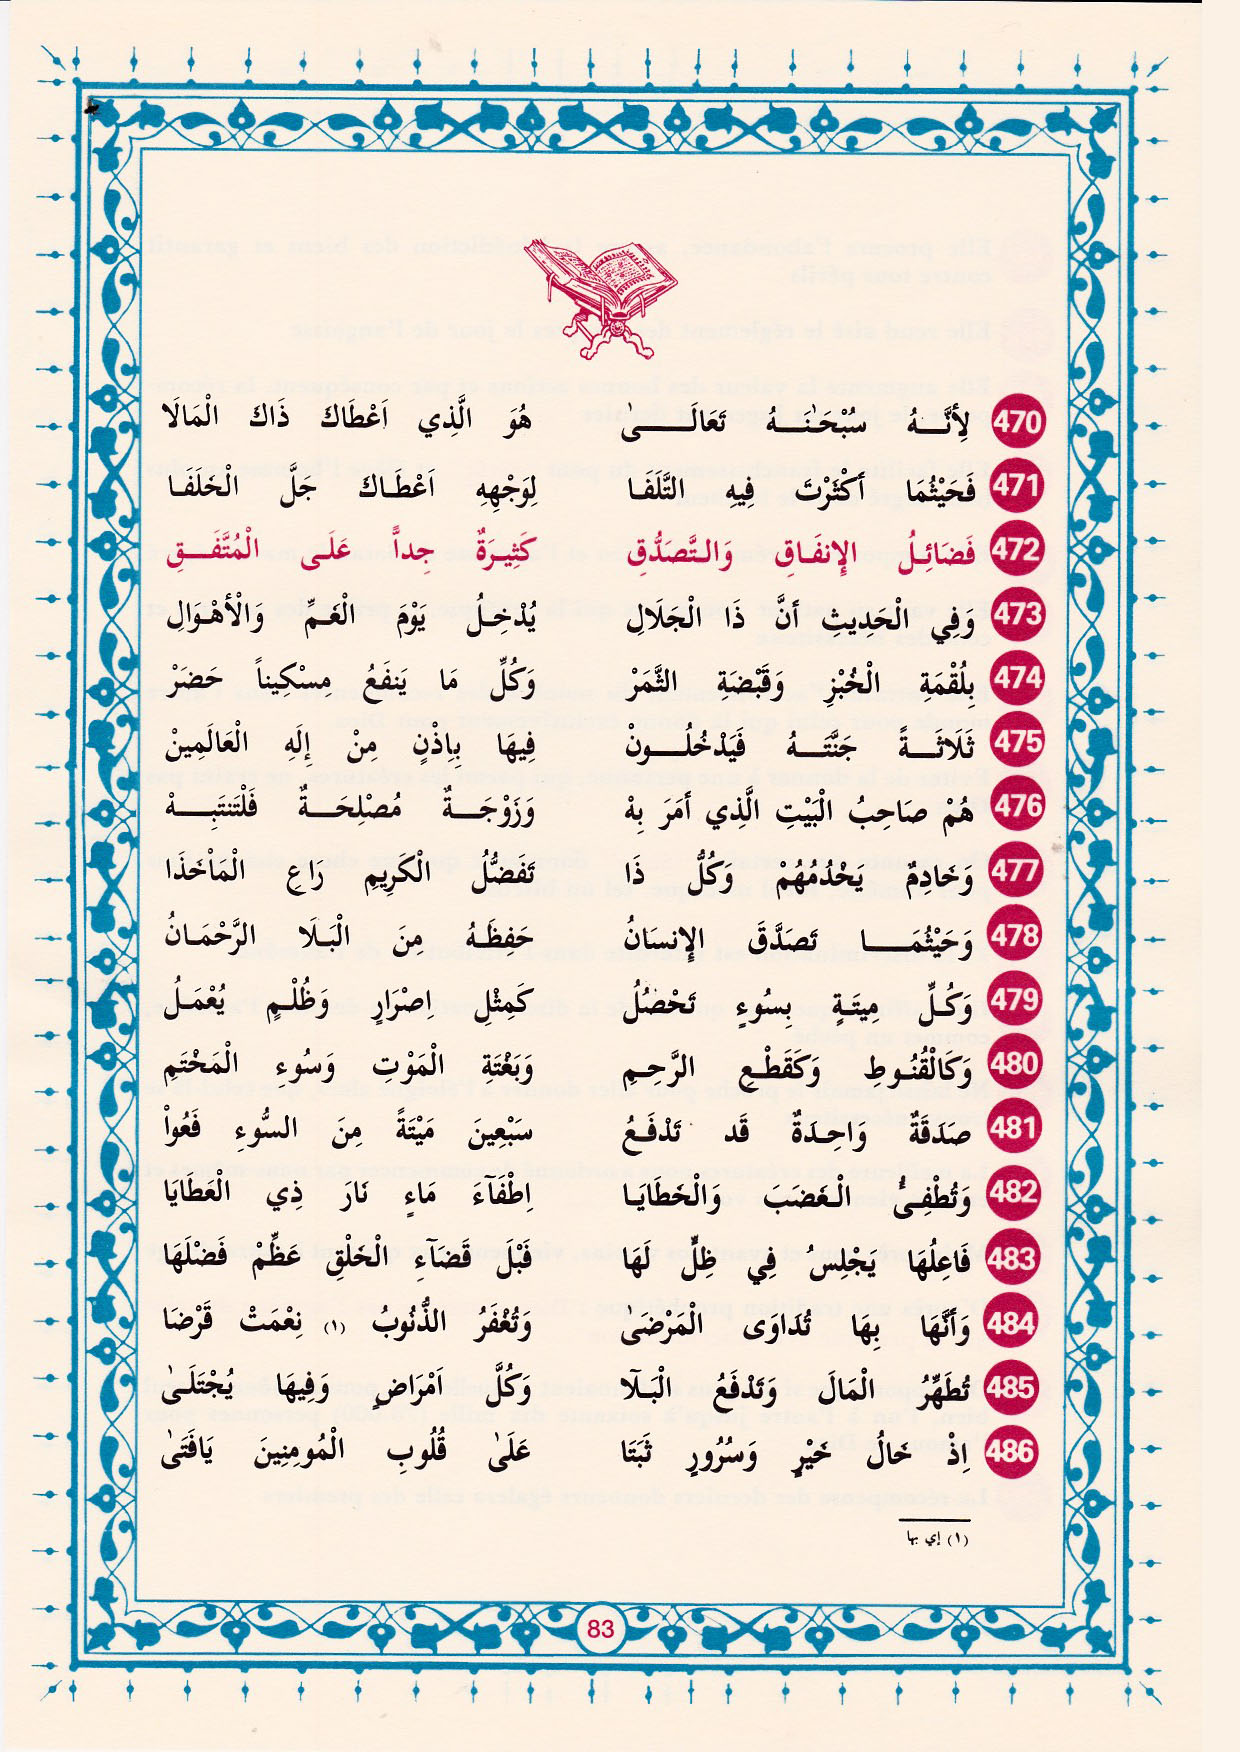 470 لِأَنَّـــهُ سُبْحَـٰنَـــهُ تَعَالَـــــىٰ هُوَ الَّذِي اَعْطَاكَ ذَاكَ الْمَالَا
471 فَحَيْثُمَا أَكْثَرْتَ فِيهِ التَّلَفَـا لِوَجْهِهِ اَعْطَـاكَ جَلَّ الْخَلَفَـا
472 فَضَائِـلُ الإِنفَـاقِ وَالـتَّصَدُّقِ كَثِيـرَةٌ جِداًّ عَلَـى الْمُتَّفَـــقِ
473 وَفِي الْحَدِيـثِ أَنَّ ذَا الْجَلَالِ يُدْخِـلُ يَوْمَ الْغَمِّ وَالْأهْـوَالِ
474 بِلُقْمَةِ الْخُبْزِ وَقَبْضَةِ الثَّمَرْ وَكُلِّ مَا يَنفَعُ مِسْكِيناً حَضَرْ
475 ثَلَاثَـــةً جَنَّتَـــهُ فَيَدْخُلُـــونْ فِيهَا بِاِذْنٍ مِنْ إِلَهِ الْعَالَمِينْ
476 هُمْ صَاحِبُ الْبَيْتِ الَّذِي أَمَرَ بِهْ وَزَوْجَـــةٌ مُصْلِحَـــةٌ فَلْتَنتَبِـــهْ
477 وَخَادِمٌ يَخْدُمُهُمْ وَكُلُّ ذَا تَفَضُّلُ الْكَرِيمِ رَاعِ الْمَأْخَذَا
478 وَحَيْثُمَـــــا تَصَدَّقَ الإِنسَانُ حَفِظَـهُ مِنَ الْبَـلَا الرَّحْمَـانُ
479 وَكُـلِّ مِيتَـةٍ بِسُوءٍ تَحْصُلُ كَمِثْلِ اِصْرَارٍ وَظُلْـمٍ يُعْمَـلُ
480 وَكَالْقُنُـوطِ وَكَقَطْـعِ الرَّحِـمِ وَبَغْتَةِ الْمَوْتِ وَسُوءِ الْمَخْتَمِ
481 صَدَقَةٌ وَاحِـدَةٌ قَد تَدْفَـعُ سَبْعِينَ مَيْتَةً مِنَ السُّوءِ فَعُواْ
482 وَتُطْفِـئُ الْـغَضَبَ وَالْخَطَايَـا اِطْفَآءَ مَاءٍ نَارَ ذِي الْعَطَايَا
483 فَاعِلُهَا يَجْلِسُ فِي ظِلٍّ لَهَا قَبْلَ قَضَآءِ الْخَلْقِ عَظِّمْ فَضْلَهَا
484 وَأَنَّهَا بِهَا تُدَاوَى الْمَرضَى وَتُغْفَرُ الذُّنُوبُ (١) نِعْمَتْ قَرْضَا
485 تُطَهِّرُ الْمَالَ وَتَدْفَعُ الْبَـلَآ وَكُلَّ اَمْرَاضٍ وَفِيهَا يُجْتَلَـىٰ
486 اِذْ خَالُ خَيْرٍ وَسُرُورٍ ثَبَتَا عَلَىٰ قُلُوبِ الْمُومِنِينَ يَافَتَىٰ
(١) إي بها
83